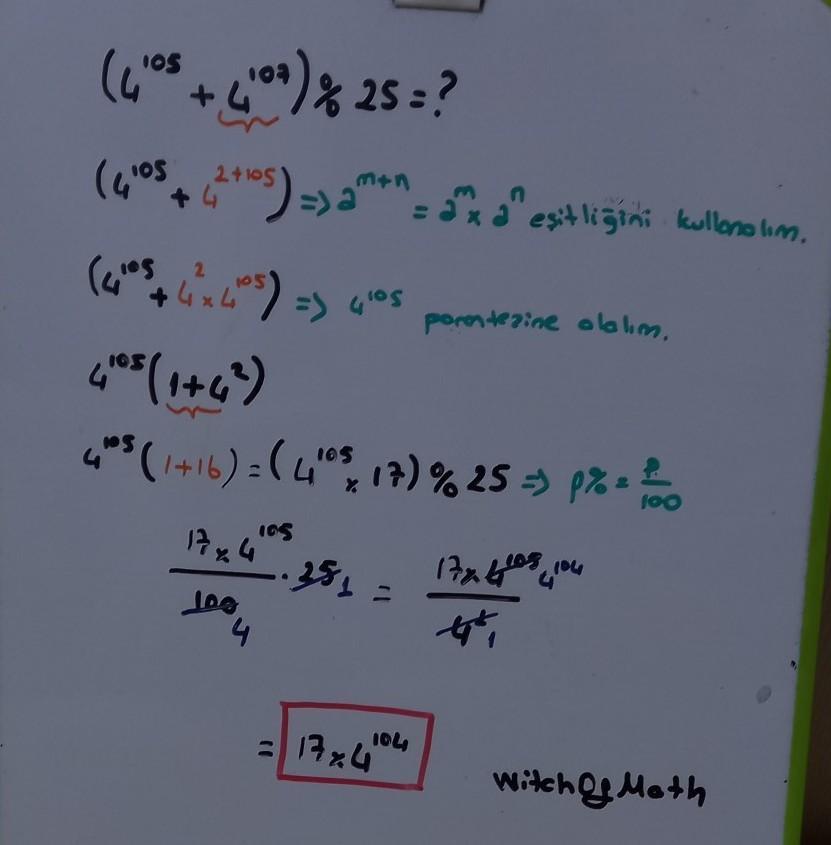 (4¹⁰⁵ + 4¹⁰⁷) % 25 = ?
(4¹⁰⁵ + 4²⁺¹⁰⁵) => a^(m+n) = a^m x a^n eşitliğini kullanalım.
(4¹⁰⁵ + 4² x 4¹⁰⁵) => 4¹⁰⁵ parantezine alalım.
4¹⁰⁵ (1+4²)
4¹⁰⁵ (1+16) = (4¹⁰⁵ x 17) % 25 => p% = p/100
17 x 4¹⁰⁵/100 4 . 25 1 = 17 x 4¹⁰⁵ 4¹⁰⁴/4¹ 1
= 17 x 4¹⁰⁴
WitchOfMath